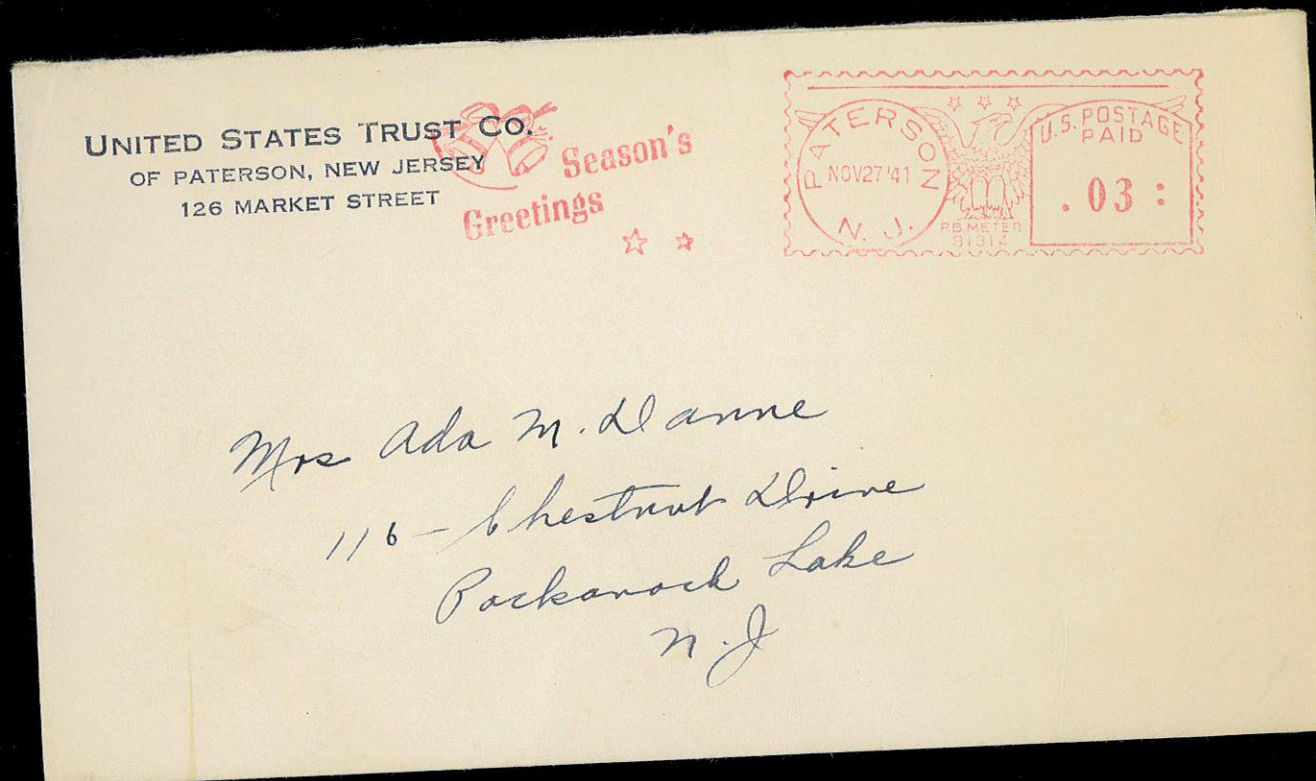 UNITED STATES TRUST CO.
OF PATERSON, NEW JERSEY
126 MARKET STREET
Season's
Greetings
PATERSON
NOV 27 '41
N. J.
P.B. METER
81314
U.S. POSTAGE
PAID
. 03 :
Mrs Ada M. Danne
116 - Chestnut Drive
Packanack Lake
N. J